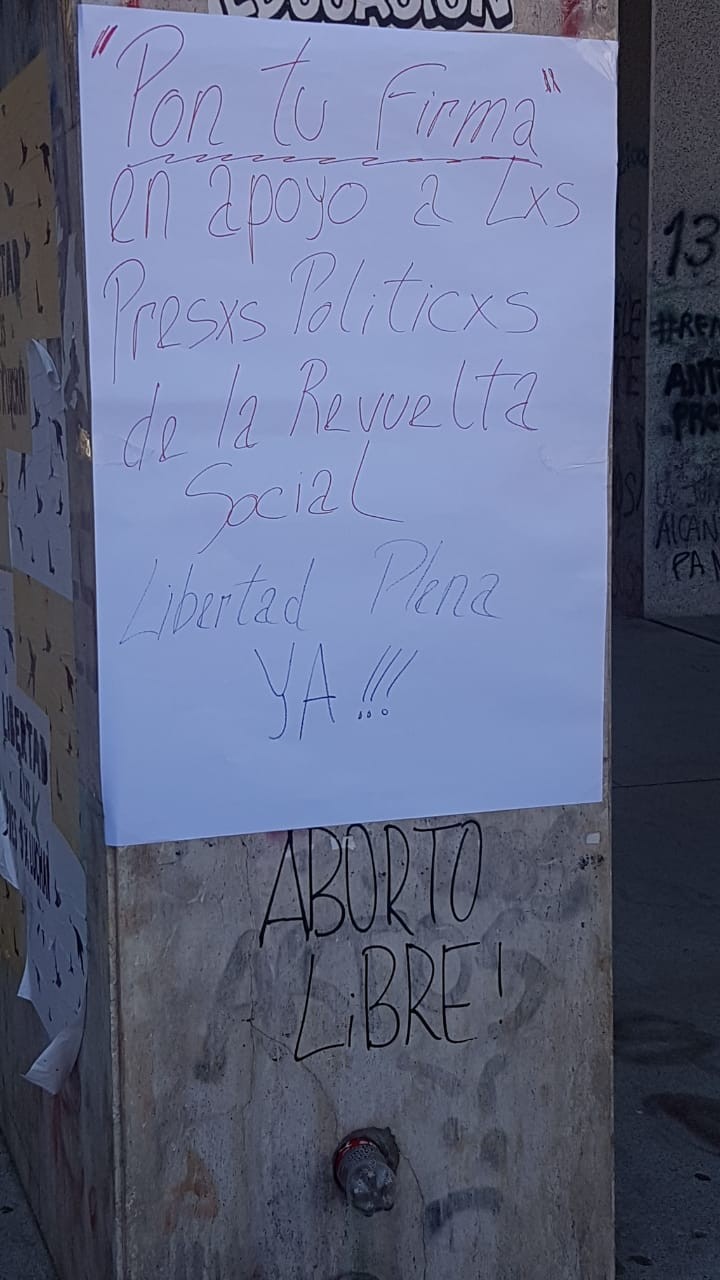 EDUCACIÓN
"Pon tu Firma"
en apoyo a Lxs
Presxs Politicxs
de la Revuelta
Social
Libertad Plena
YA!!!
ABORTO
LiBRE!
LIBERTAD
13
ALCAN